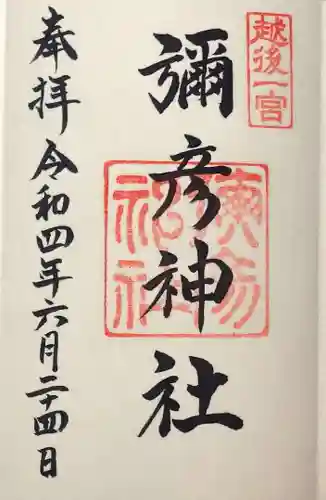 越後一宮
彌彦神社
奉拝 令和四年六月二十四日